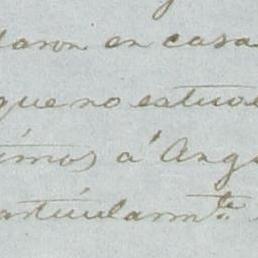 daron en casa
que no estuvo
imos á Ang
articularmte